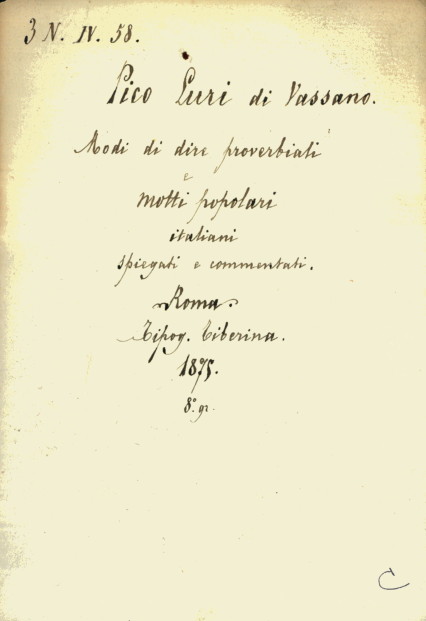 3 N. IV. 58.
Pico Luri di Vassano.
Modi di dire proverbiali
e
motti popolari
italiani
spiegati e commentati.
Roma.
Tipog. Tiberina.
1875.
8.° gr.
C